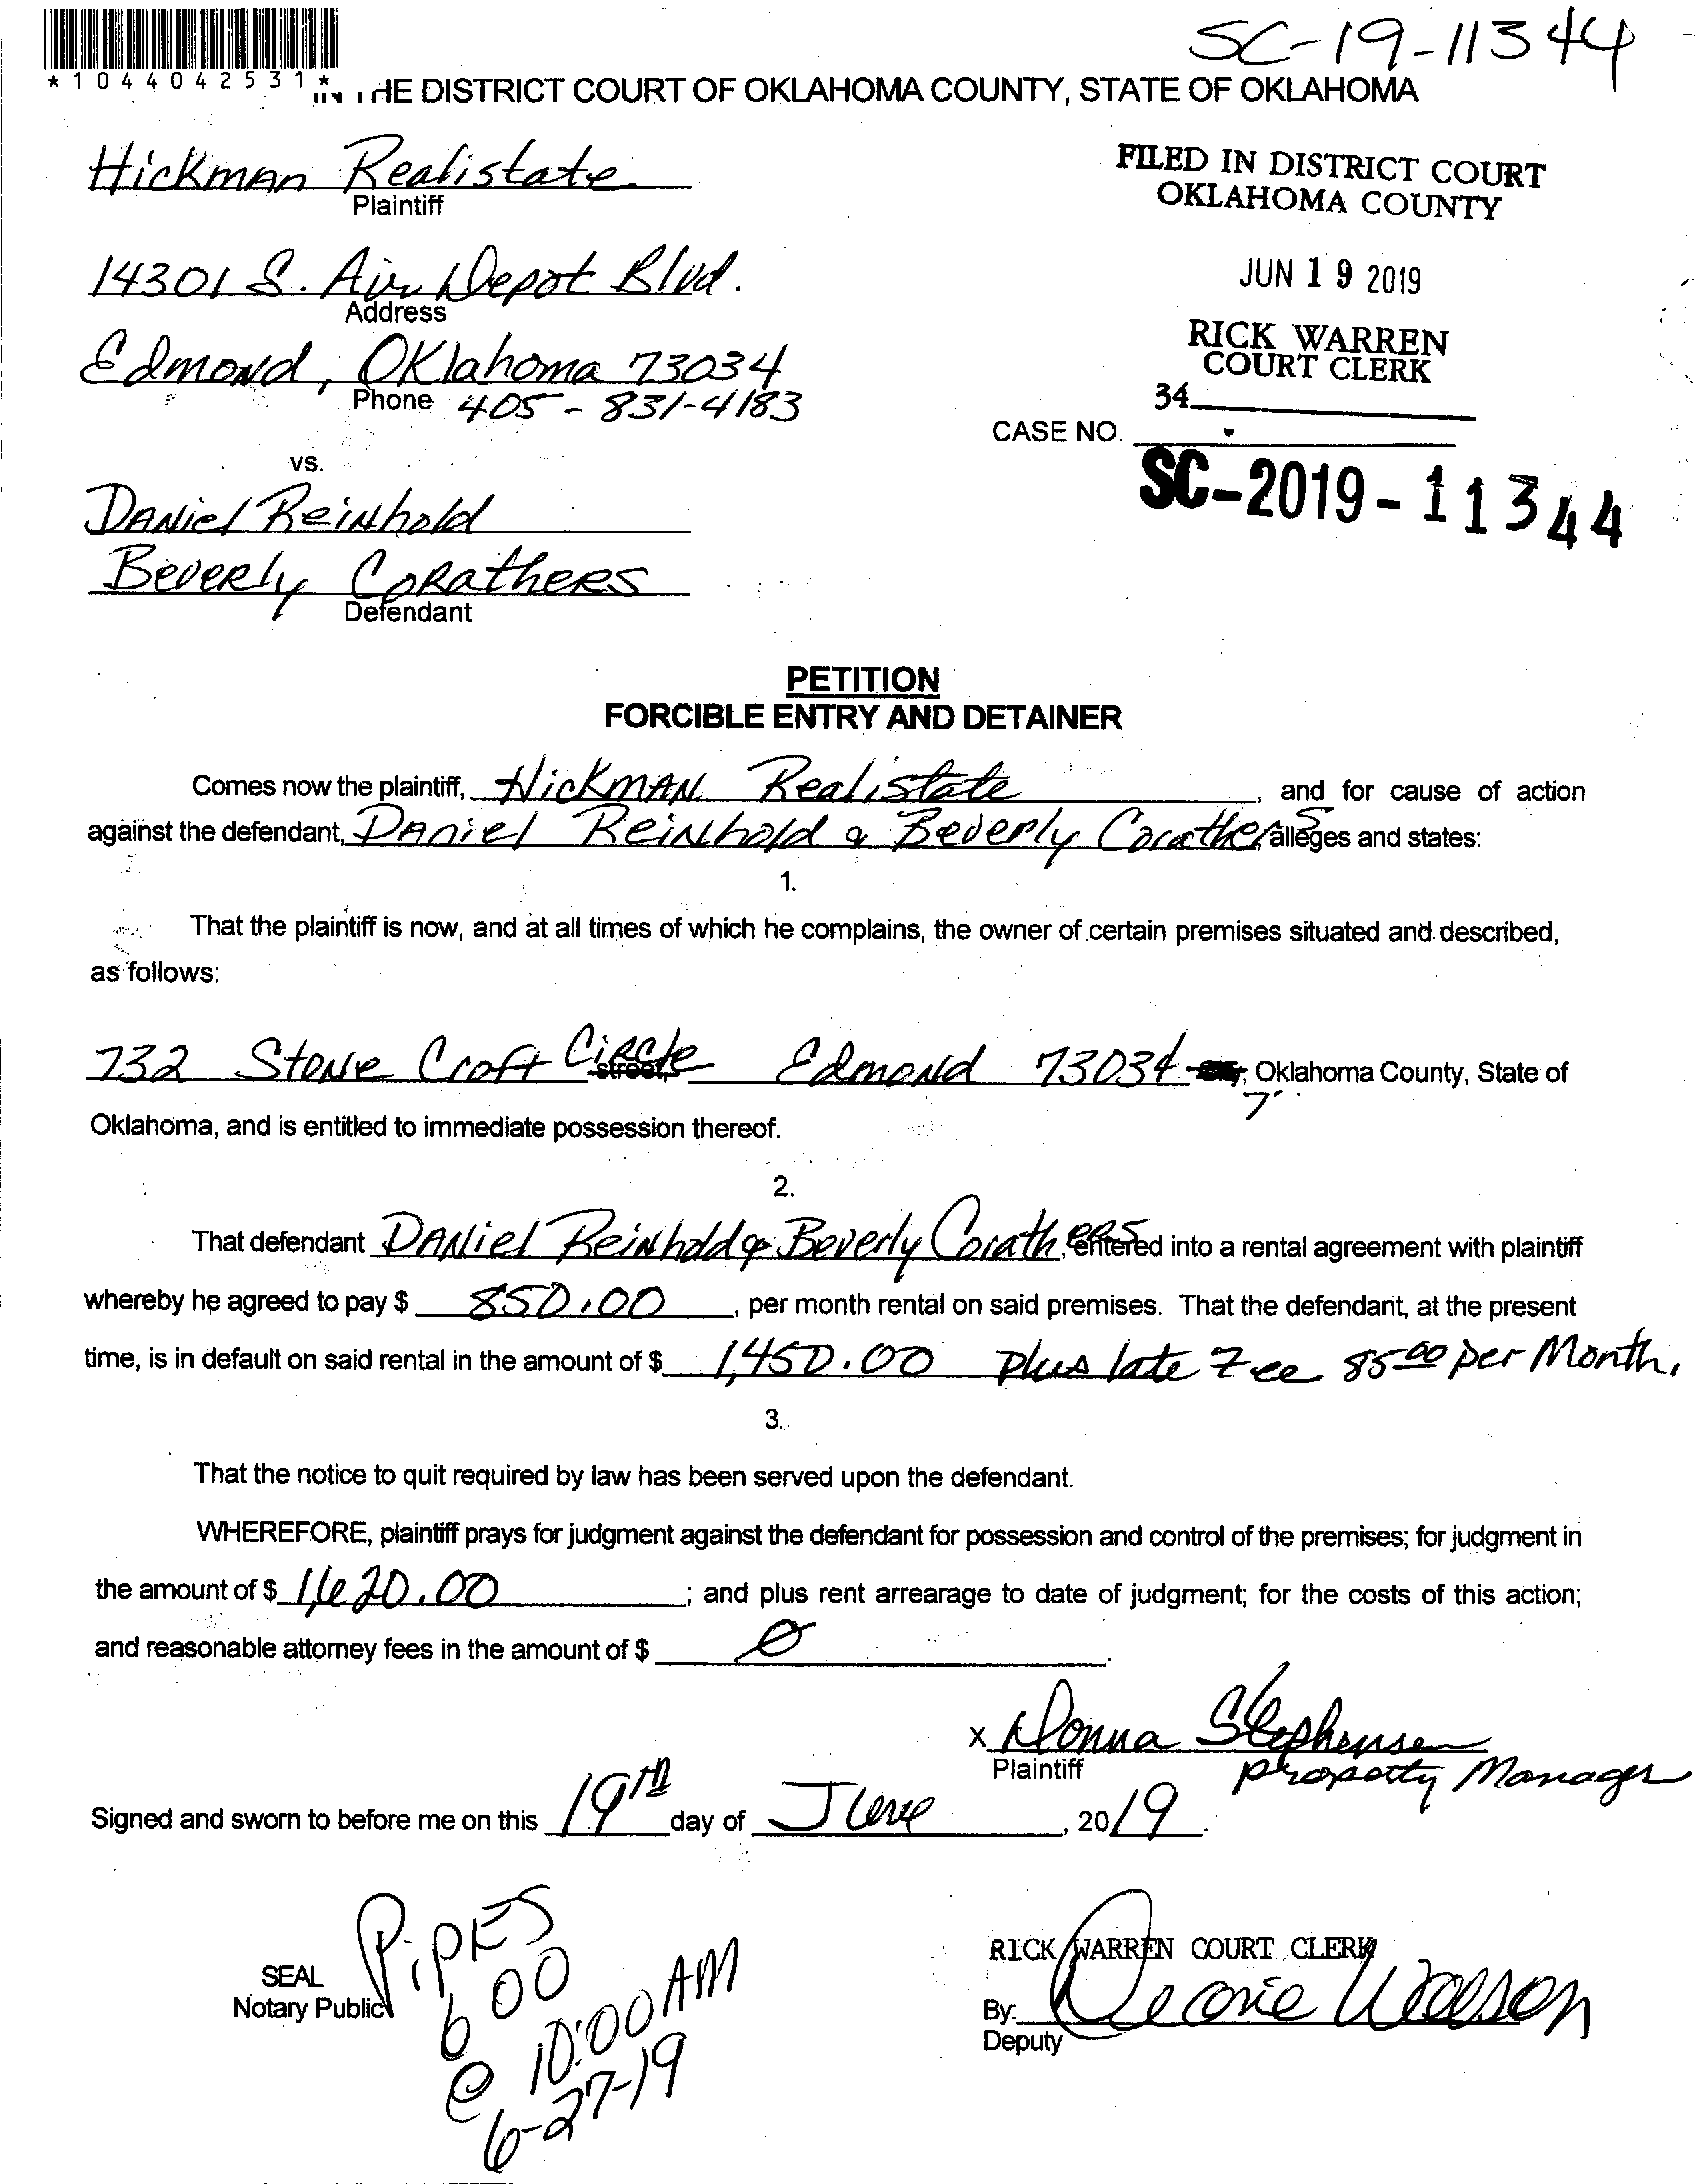 SC-19-11344
*1044042531*
HE DISTRICT COURT OF OKLAHOMA COUNTY, STATE OF OKLAHOMA
Hickman Realistate
Plaintiff
FILED IN DISTRICT COURT
OKLAHOMA COUNTY
14301 S. Air Depot Blvd.
Address
JUN 19 2019
Edmond, Oklahoma 73034
Phone 405-831-4183
RICK WARREN
COURT CLERK
34
CASE NO.
SC-2019-11344
vs.
Daniel Reinhold
Beverly Corathers
Defendant
PETITION
FORCIBLE ENTRY AND DETAINER
Comes now the plaintiff, Hickman Realistate, and for cause of action
against the defendant, Daniel Reinhold & Beverly Corathers alleges and states:
1.
That the plaintiff is now, and at all times of which he complains, the owner of certain premises situated and described,
as follows:
732 Stone Croft Circle street, Edmond 73034, Oklahoma County, State of
Oklahoma, and is entitled to immediate possession thereof.
2.
That defendant Daniel Reinhold & Beverly Corathers, entered into a rental agreement with plaintiff
whereby he agreed to pay $ 850.00, per month rental on said premises. That the defendant, at the present
time, is in default on said rental in the amount of $ 1,450.00 plus late Fee 85.00 per Month.
3.
That the notice to quit required by law has been served upon the defendant.
WHEREFORE, plaintiff prays for judgment against the defendant for possession and control of the premises; for judgment in
the amount of $ 1,620.00; and plus rent arrearage to date of judgment; for the costs of this action;
and reasonable attorney fees in the amount of $ 0.
x Donna Stephenson
Plaintiff property Manager
Signed and sworn to before me on this 19th day of June, 2019.
PiPES
600
@ 10:00 AM
6-27-19
SEAL
Notary Public
RICK WARREN COURT CLERK
By:
Deputy